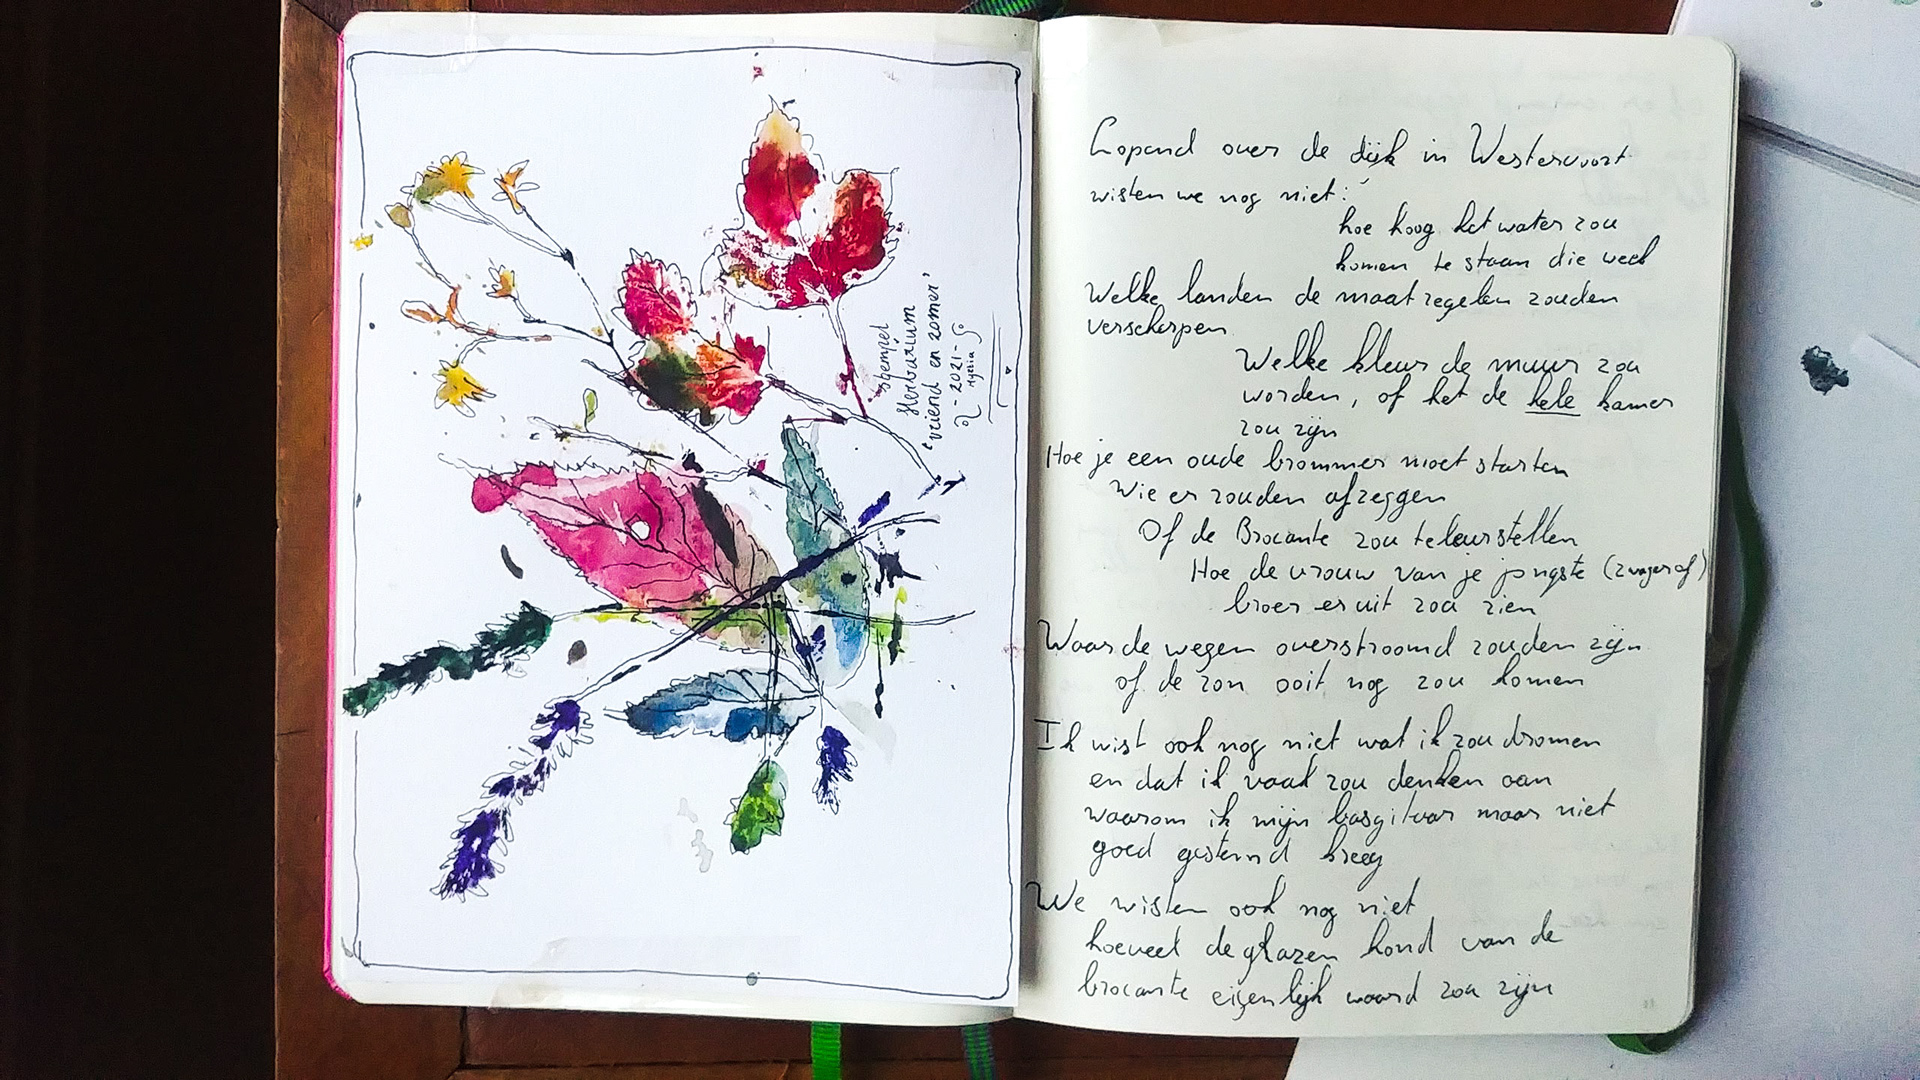 stempel
Herbarium
'vriend en zomer'
2021
Lopend over de dijk in Westervoort
wisten we nog niet:
hoe hoog het water zou
komen te staan die week
Welke landen de maatregelen zouden
verscherpen
Welke kleur de muur zou
worden, of het de hele kamer
zou zijn
Hoe je een oude brommer moet starten
Wie er zouden afzeggen
Of de Brocante zou teleurstellen
Hoe de vrouw van je jongste (zwager of)
broer eruit zou zien
Waar de wegen overstroomd zouden zijn
of de zon ooit nog zou komen
Ik wist ook nog niet wat ik zou dromen
en dat ik vaak zou denken aan
waarom ik mijn basgitaar maar niet
goed gestemd kreeg
We wisten ook nog niet
hoeveel de glazen hond van de
brocante eigenlijk waard zou zijn